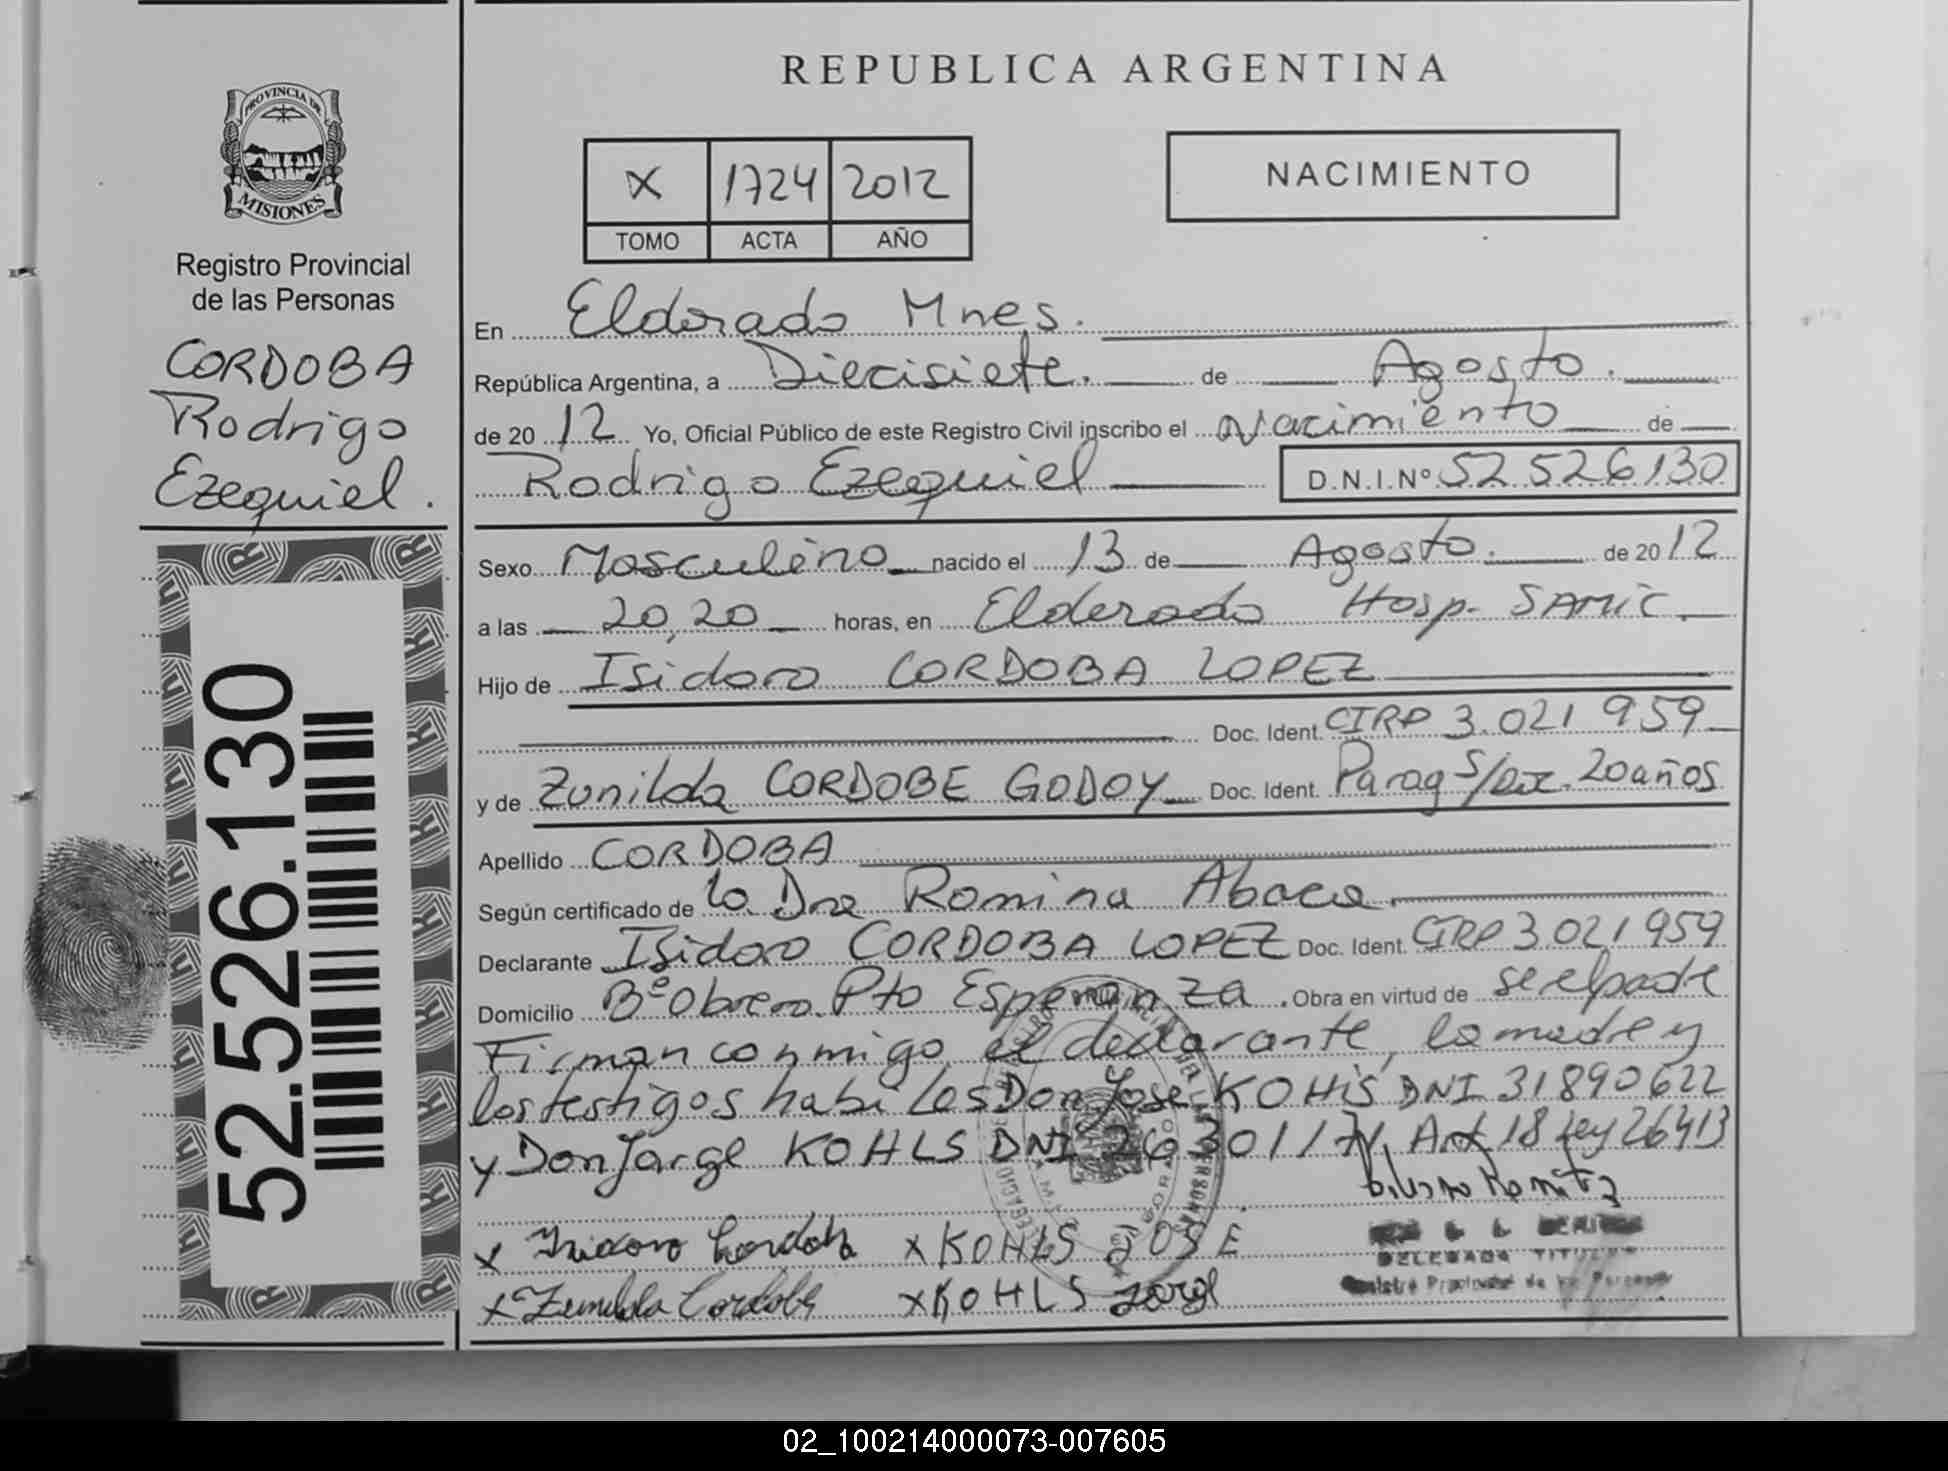 PROVINCIA DE
MISIONES
Registro Provincial
de las Personas
CORDOBA
Rodrigo
Ezequiel.
52.526.130
REPUBLICA ARGENTINA
X 1724 2012
TOMO ACTA AÑO
NACIMIENTO
En Eldorado Mnes.
República Argentina, a Diecisiete. de Agosto.
de 20 12 Yo, Oficial Público de este Registro Civil inscribo el Nacimiento de
Rodrigo Ezequiel D.N.I.Nº 52.526.130
Sexo Masculino nacido el 13 de Agosto. de 20 12
a las 20,20 horas, en Eldorado Hosp. SAMIC.
Hijo de Isidoro CORDOBA LOPEZ
Doc. Ident. CIRP 3.021.959
y de Zunilda CORDOBE GODOY Doc. Ident. Parag s/doc. 20 años
Apellido CORDOBA
Según certificado de la Dra Romina Abaca.
Declarante Isidoro CORDOBA LOPEZ Doc. Ident. CIRP 3.021.959
Domicilio Bº Obrero. Pto Esperanza. Obra en virtud de ser el padre
Firman conmigo el declarante, la madre y
los testigos habiles Don Jose KOHLS DNI 31890622
y Don Jorge KOHLS DNI 26301171, Art 18 Ley 26413
x Isidoro Cordoba x KOHLS JOSE
DELEGADA TITULAR
x Zunilda Cordobe x KOHLS Jorge
Registro Provincial de las Personas
02_100214000073-007605